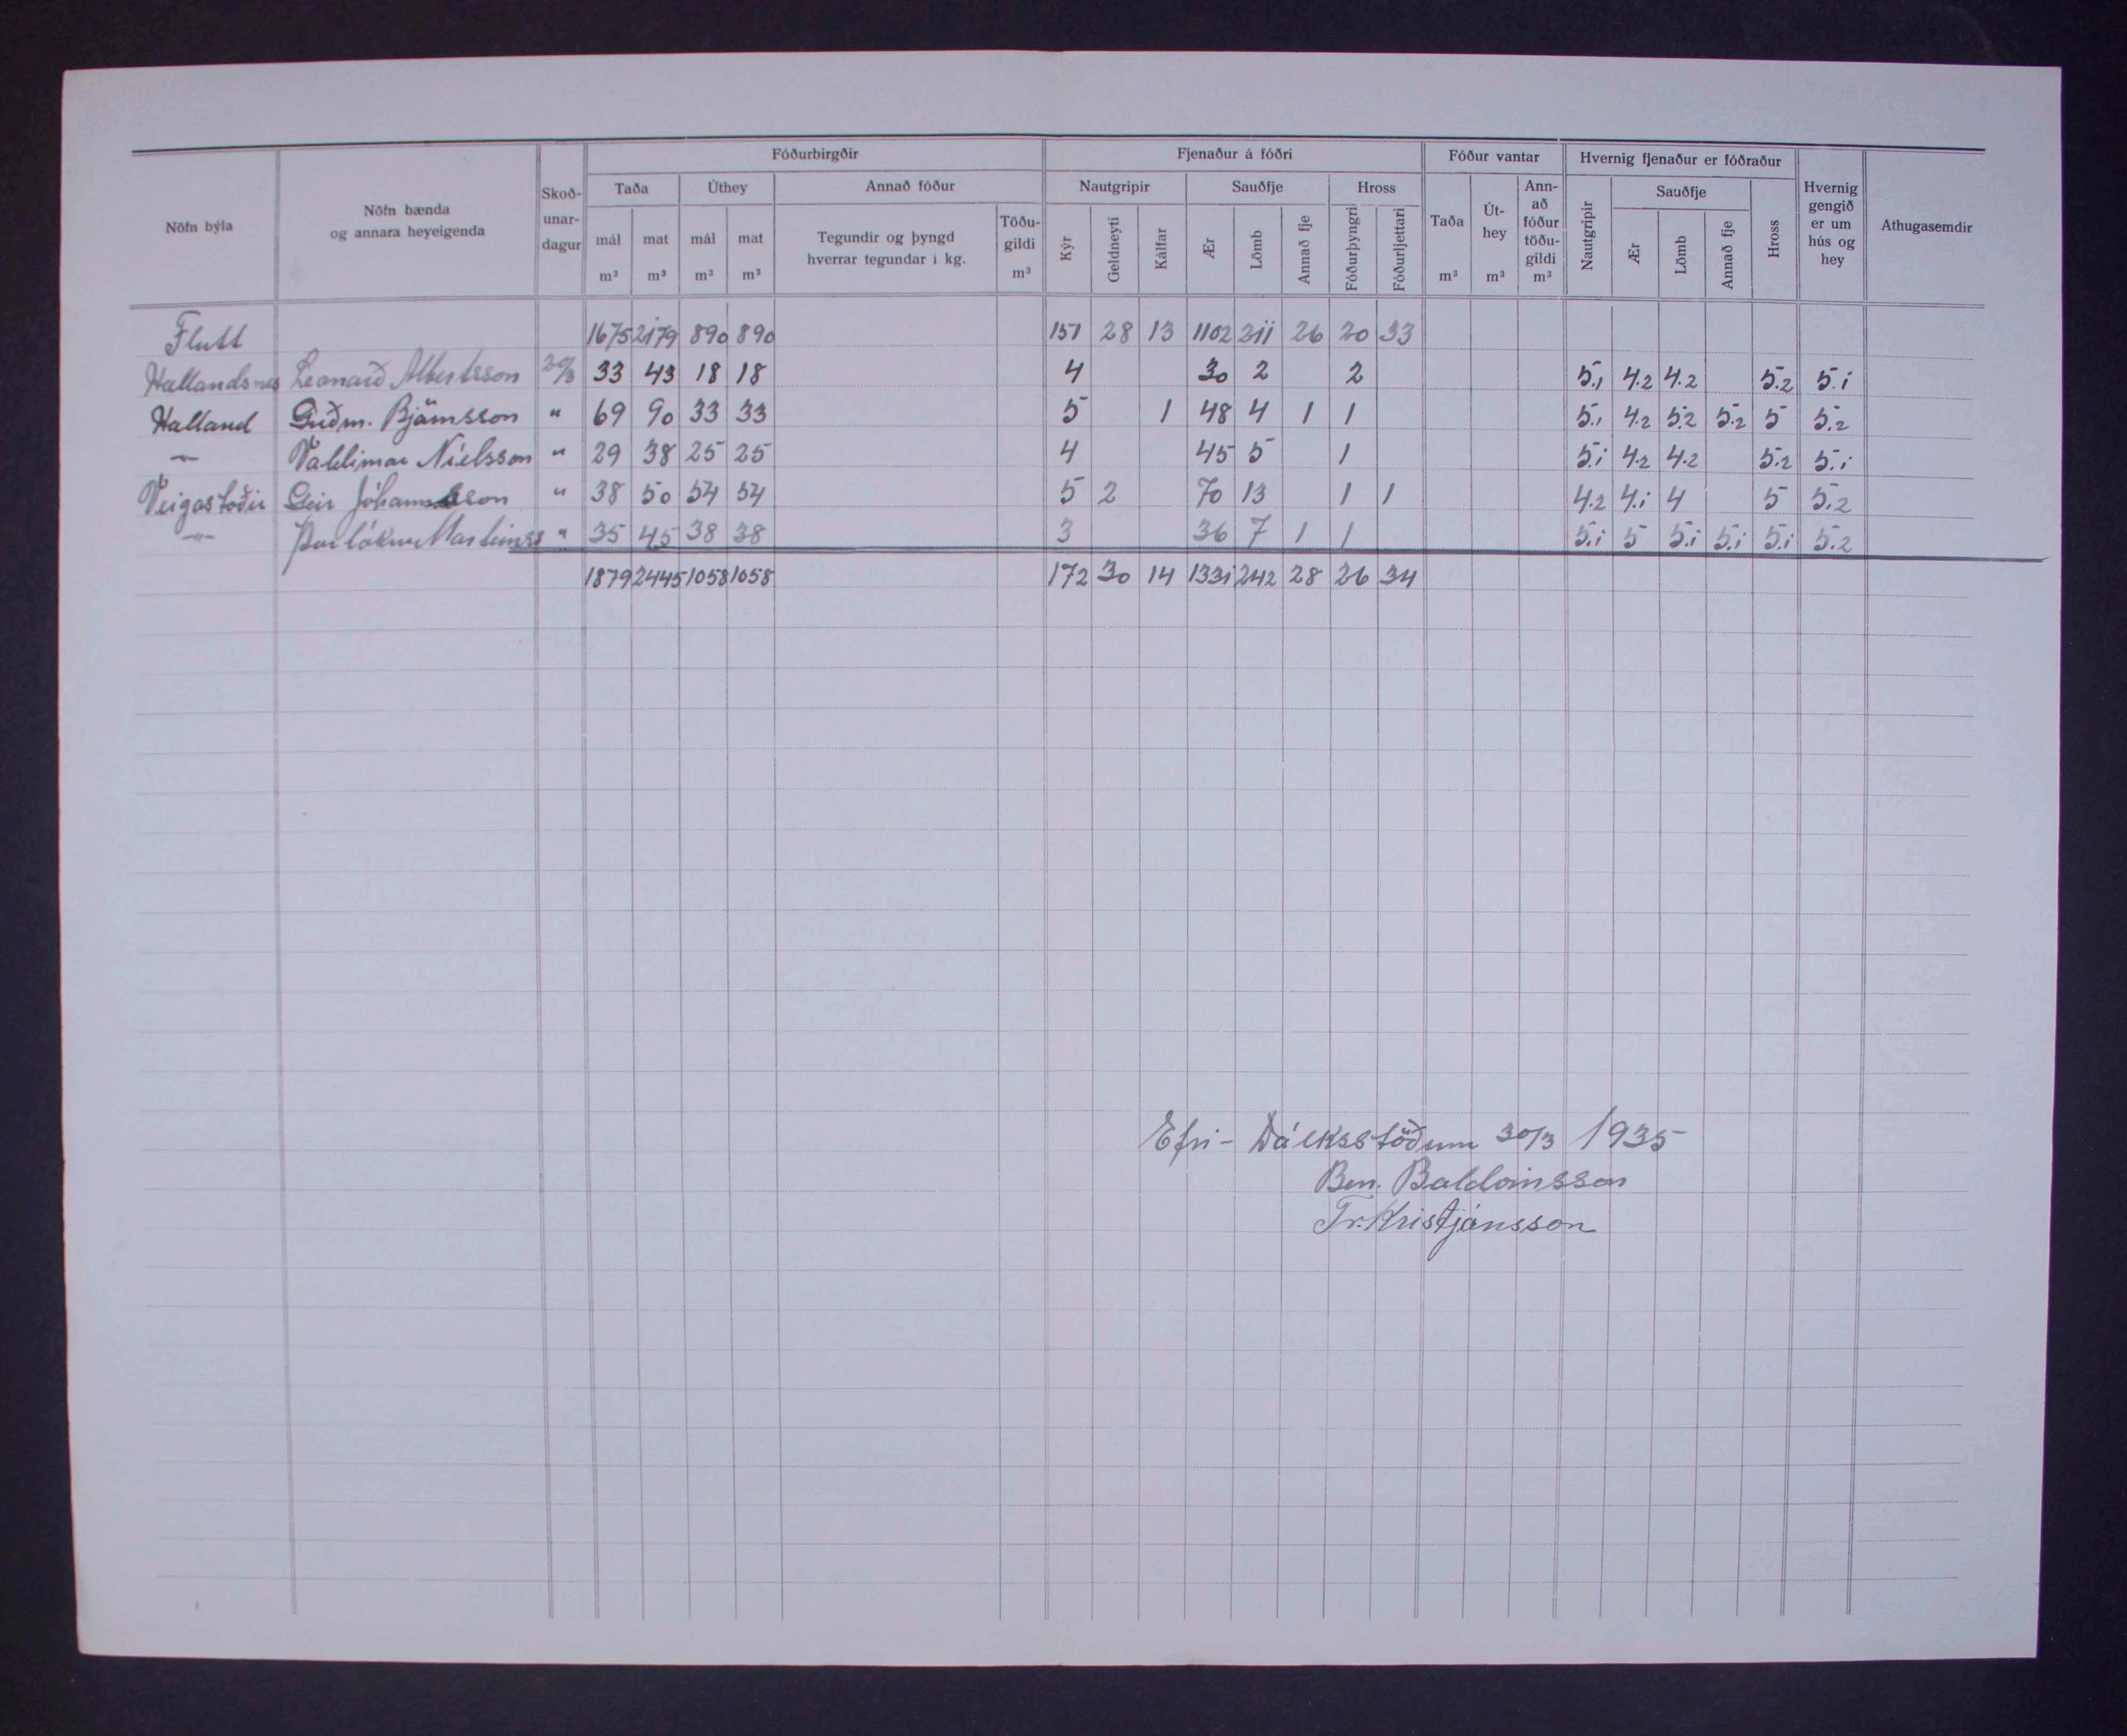 Fóðurbirgðir Fjenaður á fóðri Fóður vantar Hvernig fjenaður er fóðraður
Nöfn býla Nöfn bænda og annara heyeigenda Skoð-unar-dagur Taða Úthey Annað fóður Nautgripir Sauðfje Hross Taða Út-hey Ann-að fóður töðu-gildi Nautgripir Sauðfje Hross Hvernig gengið er um hús og hey Athugasemdir
mál mat mál mat Tegundir og þyngd hverrar tegundar í kg. Töðu-gildi Kýr Geldneyti Kálfar Ær Lömb Annað fje Fóðurþyngri Fóðurljettari Ær Lömb Annað fje
m³ m³ m³ m³ m³ m³ m³ m³
Flutt 1675 2179 890 890 151 28 13 1102 211 26 20 33
Hallandsnes Leonarð Albertsson 30/3 33 43 18 18 4 30 2 2 5.1 4.2 4.2 5.2 5.1
Halland Guðm. Björnsson " 69 90 33 33 5 1 48 4 1 1 5.1 4.2 5.2 5.2 5 5.2
—"— Valdimar Níelsson " 29 38 25 25 4 45 5 1 5.1 4.2 4.2 5.2 5.1
Veigastöðir Geir Jóhannsson " 38 50 54 54 5 2 70 13 1 1 4.2 4.1 4 5 5.2
—"— Þorlákur Marteinss " 35 45 38 38 3 36 7 1 1 5.1 5 5.1 5.1 5.1 5.2
1879 2445 1058 1058 172 30 14 1331 242 28 26 34
Efri-Dálksstöðum 30/3 1935
Ben. Baldvinsson
Tr. Kristjánsson